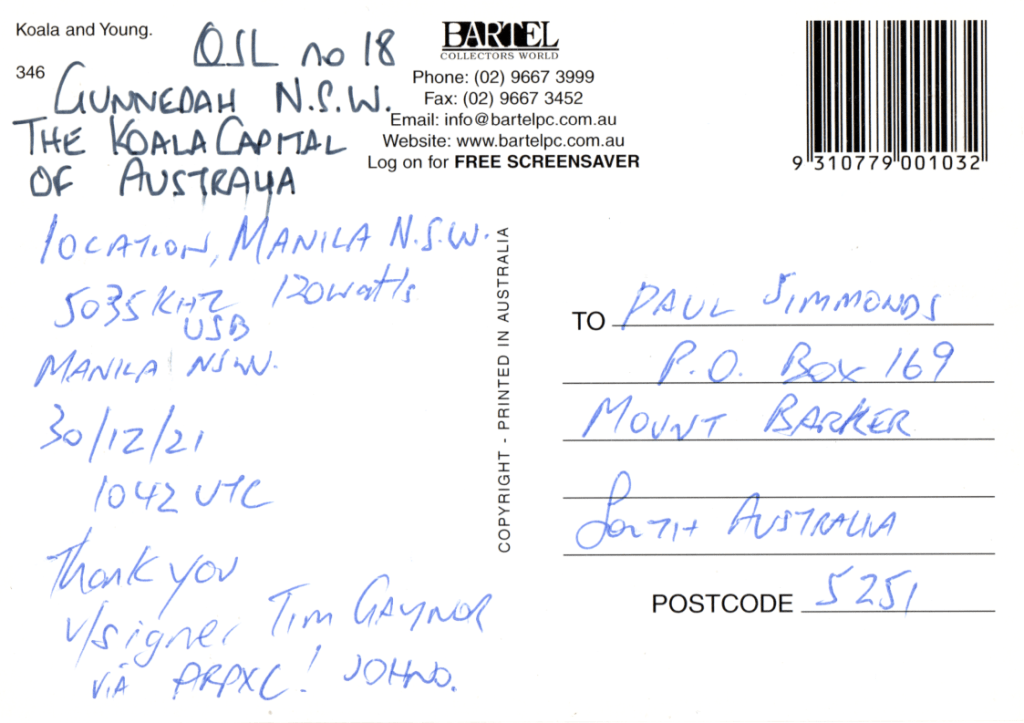 Koala and Young.
346
QSL no 18
GUNNEDAH N.S.W.
THE KOALA CAPITAL
OF AUSTRALIA
LOCATION, MANILA N.S.W.
5035 KHZ 120watts
USB
MANILA NSW.
30/12/21
1042 UTC
Thank you
v/signer TIM GAYNOR
VIA ARPXC! JOHNO.
BARTEL
COLLECTORS WORLD
Phone: (02) 9667 3999
Fax: (02) 9667 3452
Email: info@bartelpc.com.au
Website: www.bartelpc.com.au
Log on for FREE SCREENSAVER
9 310779 001032
COPYRIGHT - PRINTED IN AUSTRALIA
TO PAUL SIMMONDS
P.O. BOX 169
MOUNT BARKER
SOUTH AUSTRALIA
POSTCODE 5251